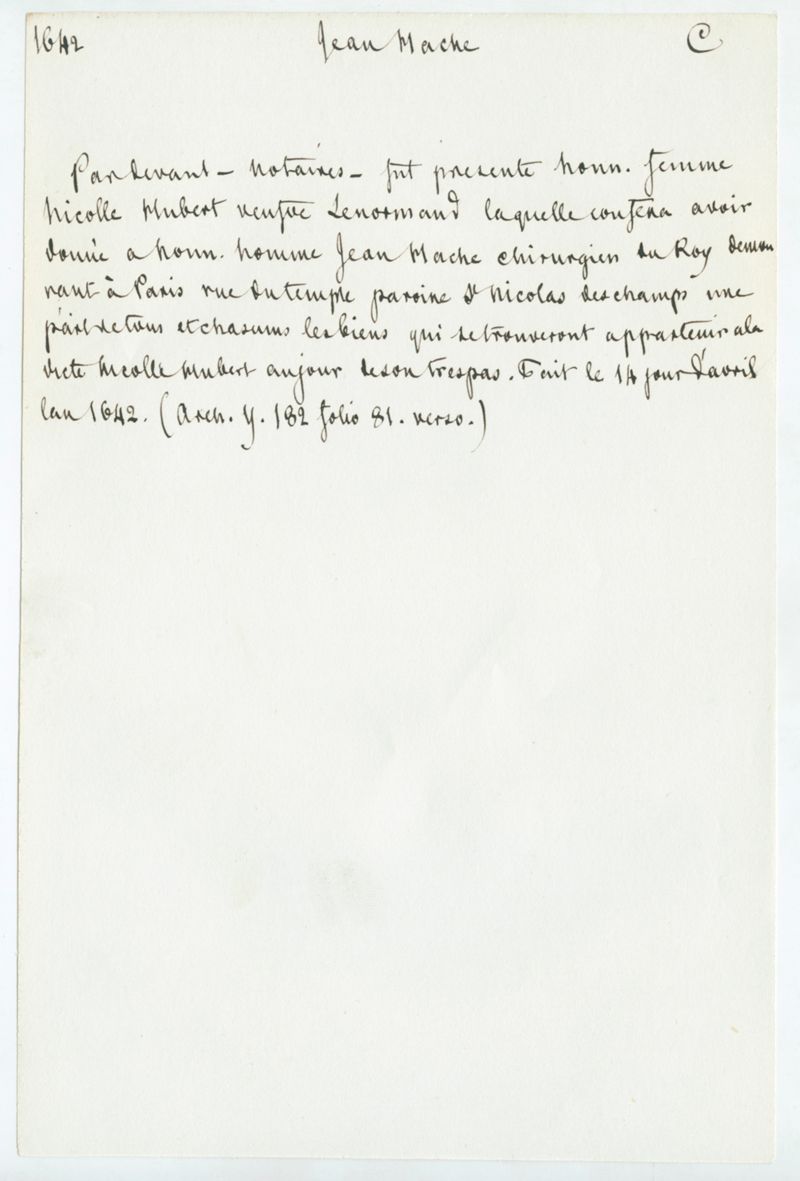 1642 Jean Mache C
Pardevant – notaires – fut presente honn. femme
Nicolle Hubert veufve Lenormand laquelle confessa avoir
donné a honn. homme Jean Mache chirurgien du Roy demou
rant à Paris rue du temple paroisse St Nicolas deschamps une
part de tous et chascuns les biens qui se trouveront appartenir a la
dicte Nicolle Hubert au jour de son trespas. Fait le 14 jour d'avril
lan 1642. (Arch. Y. 182 folio 81. verso.)